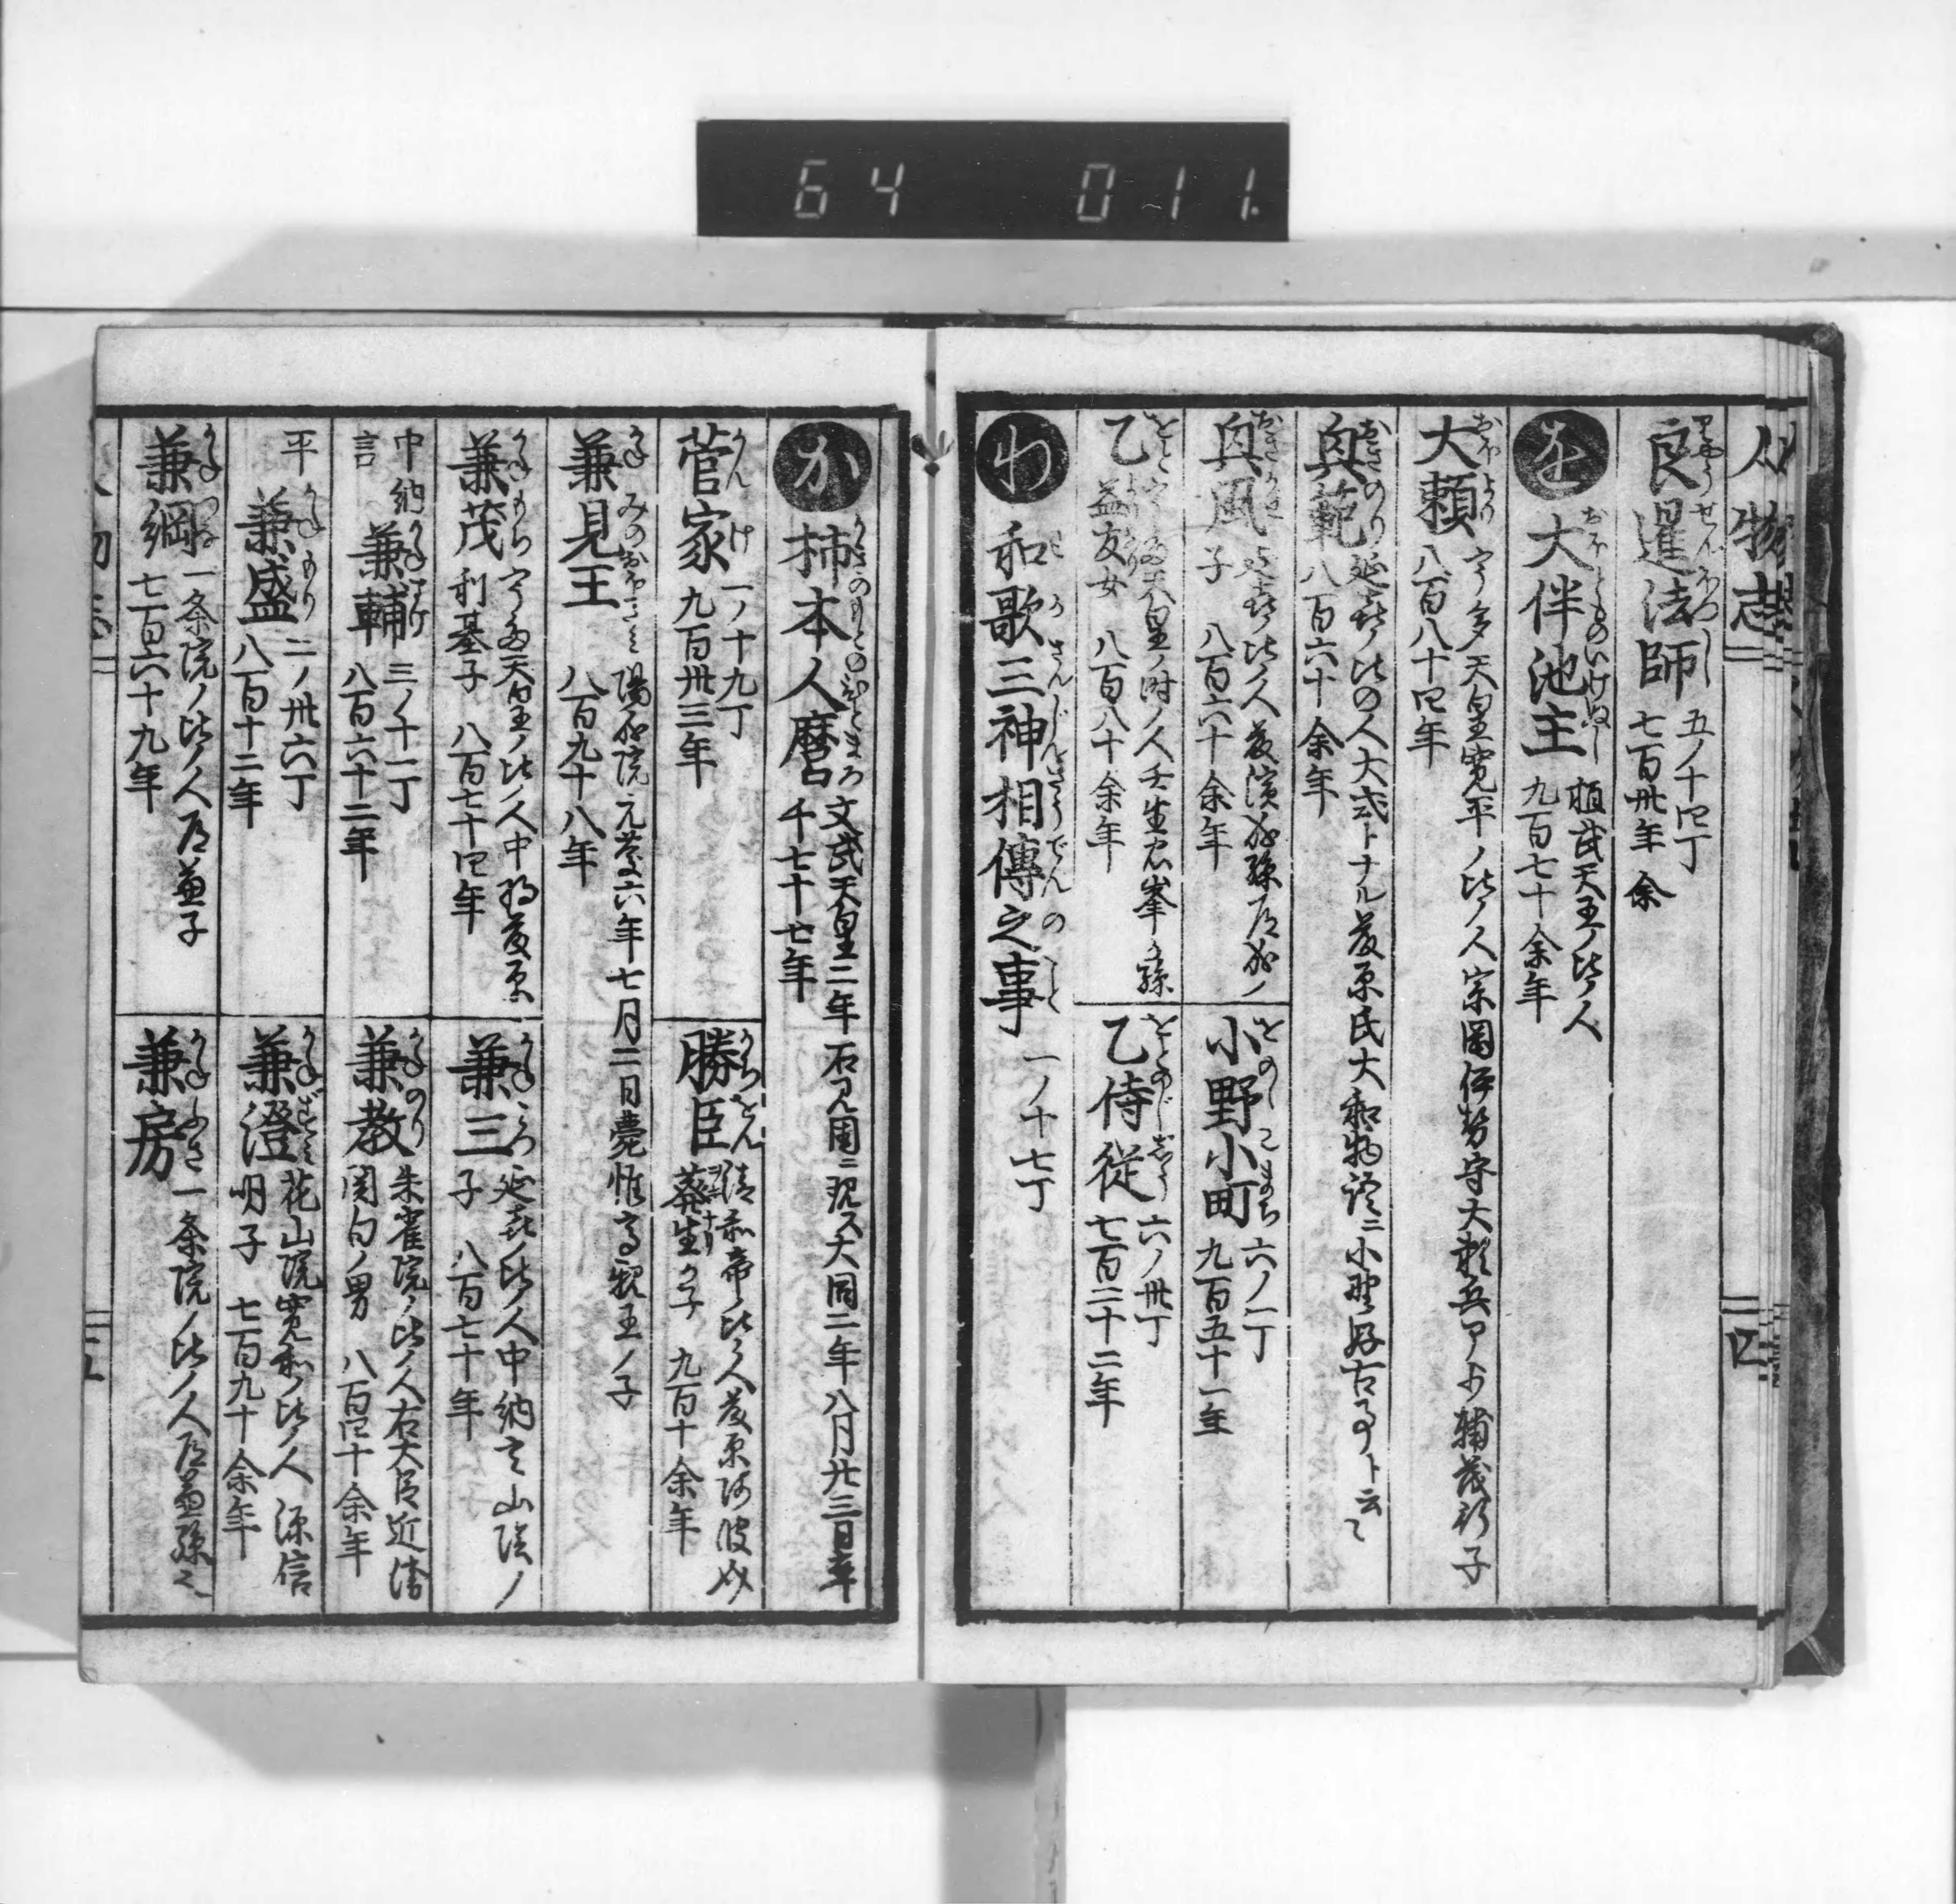 64 011.
人物志
四
良暹法師 五ノ十四丁
七百卅年余
を
大伴池主 桓武天王ノ比ノ人
九百七十余年
大頼 宇多天皇寛平ノ比ノ人宗岡伊勢守大頼兵部少輔茂行子
八百八十四年
奥範 延喜ノ比の人大弐トナル藤原氏大和物語ニ小野好古ノ事ト云々
八百六十余年
奥風 延喜ノ比ノ人藤濱成孫道成ノ
子 八百六十余年
小野小町 六ノ一丁
九百五十一年
乙 宇多天皇ノ時ノ人壬生忠峯が孫
益友女 八百八十余年
乙侍従 六ノ卅丁
七百二十二年
わ
和歌三神相傳之事 一ノ十七丁
か
柿本人麿 文武天皇二年石見国ニ現ス大同二年八月廿三日卒
千七十七年
菅家 一ノ十九丁
九百卅三年
勝臣 清和帝ノ比ノ人藤原阿波(ママ)
葵生が子 九百十余年
兼見王 陽成院元慶六年七月二日薨惟高親王ノ子
八百九十八年
兼茂 宇多天皇ノ比ノ人中将藤原
利基子 八百七十四年
兼三 延喜ノ比ノ人中納言山陰ノ
子 八百七十年
中納言
兼輔 三ノ十一丁
八百六十二年
兼教 朱雀院ノ比ノ人右大臣近清
関白ノ男 八百四十余年
平
兼盛 二ノ卅六丁
八百十二年
兼澄 花山院寛和ノ比ノ人 源信
明子 七百九十余年
兼綱 一条院ノ比ノ人道兼子
七百六十九年
兼房 一条院ノ比ノ人道兼孫也